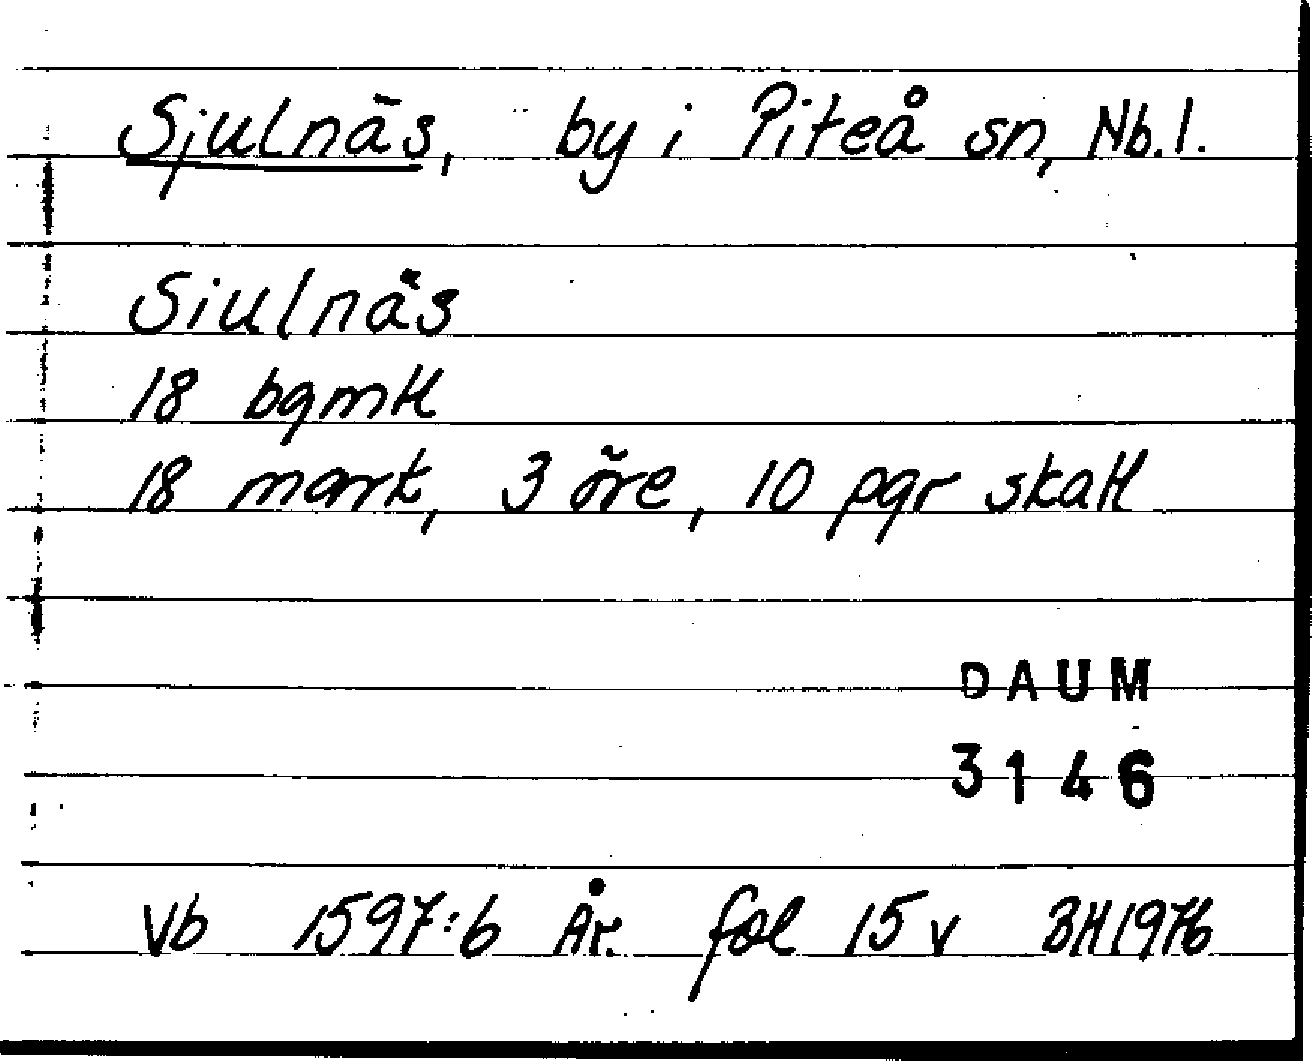 Sjulnäs, by i Piteå sn, Nb.l.
Siulnäs
18 bgmtl
18 mark, 3 öre, 10 pgr skatt
DAUM
3146
Vb 1597:6 År. fol 15 v BH1976